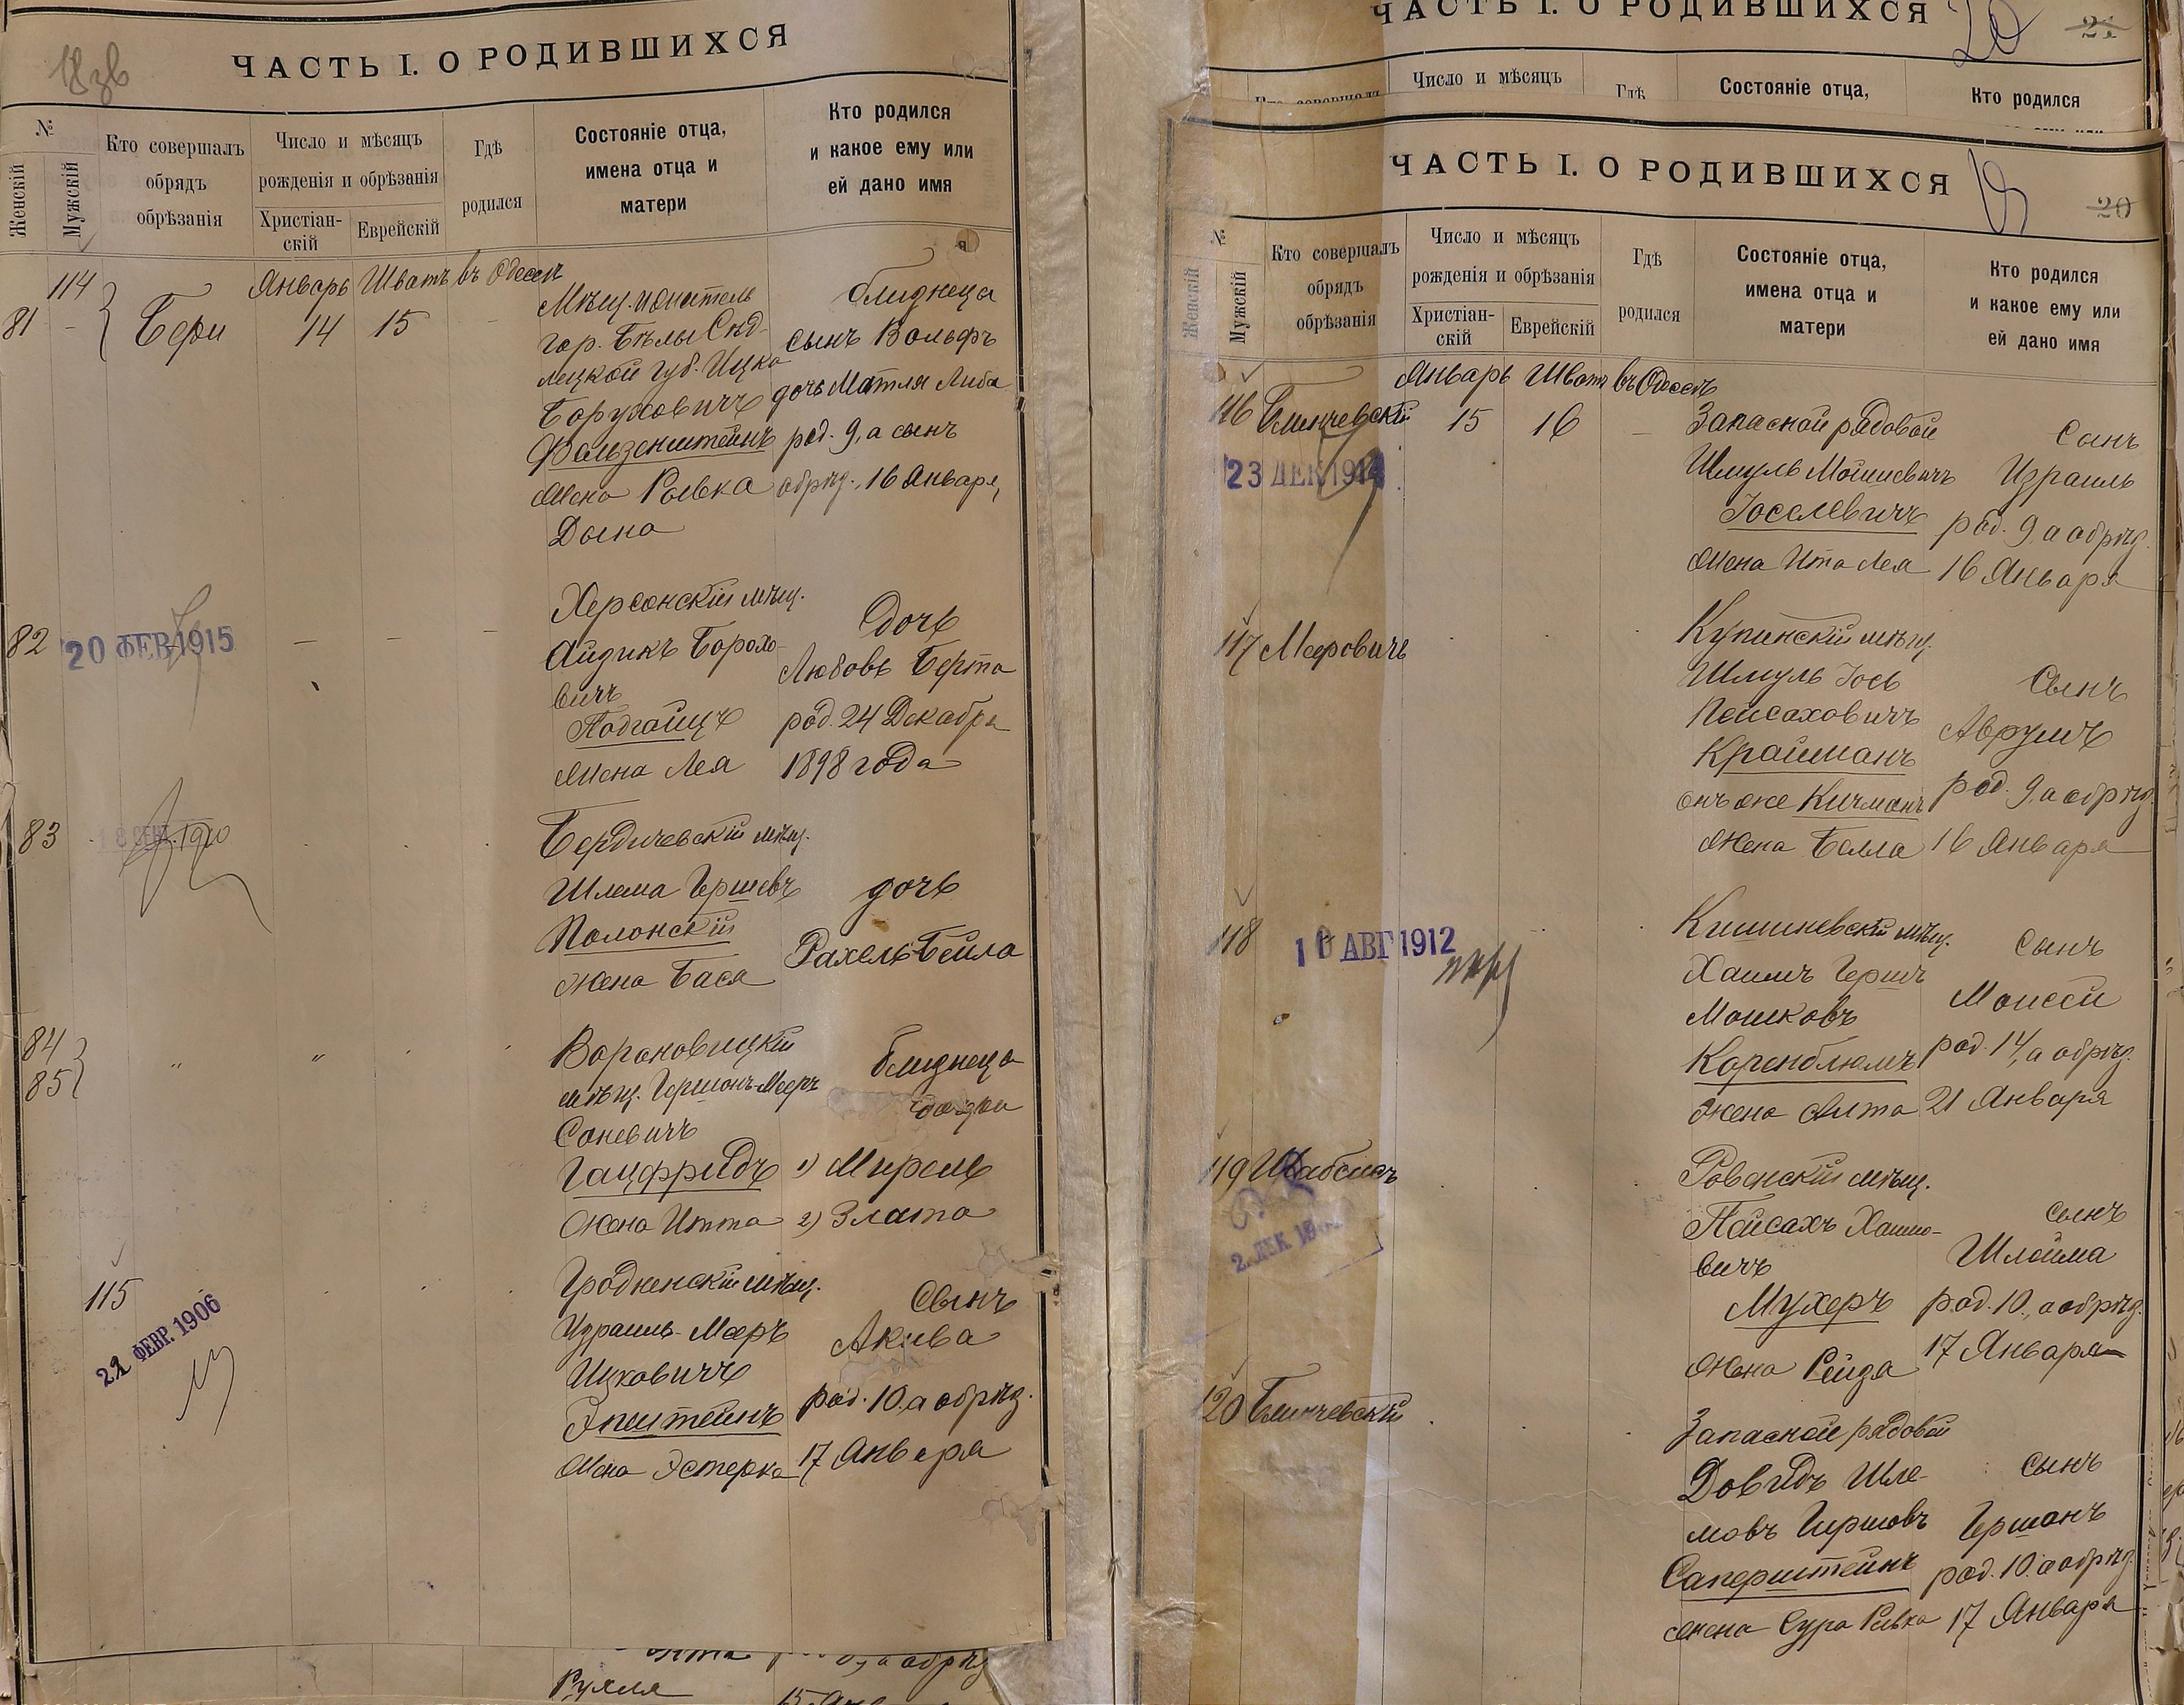 ЧАСТЬ I. О РОДИВШИХСЯ
№
Женскій
Мужскій
Кто совершалъ
обрядъ
обрѣзанія
Число и мѣсяцъ
рожденія и обрѣзанія
Христіан-
скій
Еврейскій
Гдѣ
родился
Состояніе отца,
имена отца и
матери
Кто родился
и какое ему или
ей дано имя
114
81 -
Бери
Январь Шватъ въ Одессѣ
14 15
Мѣщ.
гор. Бѣлы Сѣд-
лецкой губ. Ицко
Боруховичъ
Фальзенштейнъ
жена Ривка
Двойра
близнеца
сынъ Вольфъ
дочь Матля Либа
род. 9, а сынъ
обрѣз. 16 Января
82
20 ФЕВ 1915
Херсонскій мѣщ.
Айзикъ Борохо-
вичъ
Подгаицъ
жена Лея
Дочь
Любовь Берта
род. 24 Декабря
1898 года
83
18 СЕНТ. 1910
Бердичевскій мѣщ.
Шлема Гершевъ
Полонскій
жена Бася
дочь
Рахель Бейла
84
85
Вороновицкій
мѣщ. Гершонъ-Мееръ
Саневичъ
Гацфридъ
жена Итта
близнеца
1) Мирель
2) Злата
115
22 ФЕВР. 1906
Гродненскій мѣщ.
Израиль-Мееръ
Ицковичъ
Эпштейнъ
жена Эстерка
Сынъ
Акива
род. 10, а обрѣз.
17 Января
Рухля
ЧАСТЬ I. О РОДИВШИХСЯ
20
21
Число и мѣсяцъ
Гдѣ
Состояніе отца,
Кто родился
ЧАСТЬ I. О РОДИВШИХСЯ
20
№
Женскій
Мужскій
Кто совершалъ
обрядъ
обрѣзанія
Число и мѣсяцъ
рожденія и обрѣзанія
Христіан-
скій
Еврейскій
Гдѣ
родился
Состояніе отца,
имена отца и
матери
Кто родился
и какое ему или
ей дано имя
Январь Шватъ въ Одессѣ
116 Блинчевскій
15 16
23 ДЕК 1914
Запасной рядовой
Шмуль Мошкевичъ
Іоселевичъ
жена Ита Лея
Сынъ
Израиль
род. 9, а обрѣз.
16 Января
117 Мееровичъ
Купинскій мѣщ.
Шмуль Іось
Пейсаховичъ
Крайманъ
онъ же Кичманъ
жена Белла
Сынъ
Аврумъ
род. 9, а обрѣз.
16 Января
118
10 АВГ 1912
Кишиневскій мѣщ.
Хаимъ Гершъ
Мошковъ
Коренблюмъ
жена Алта
Сынъ
Моисей
род. 14, а обрѣз.
21 Января
119 Шабсисъ
Ровенскій мѣщ.
Пайсахъ Хаимо-
вичъ
Мухеръ
жена Рейза
сынъ
Шлойма
род. 10, а обрѣз.
17 Января
120 Блинчевскій
Запасной рядовой
Довидъ Шле-
мовъ Гершовъ
Саперштейнъ
жена Сура Ривка
сынъ
Гершонъ
род. 10, а обрѣз.
17 Января